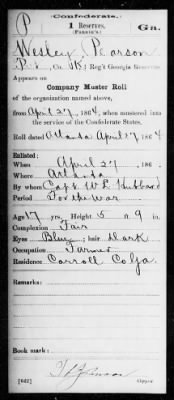 P Confederate.
1 Reserves, Ga.
(Fannin's)
Wesley Pearson
Pvt, Co. K, 1 Reg't Georgia Reserves.
Appears on
Company Muster Roll
of the organization named above,
from April 27, 1864, when mustered into
the service of the Confederate States.
Roll dated Atlanta April 27, 1864
Enlisted:
When April 27, 186
Where Atlanta
By whom Capt. W. L. Hubbard
Period For the War
Age 17 yrs, Height 5 ft. 9 in.
Complexion Fair
Eyes Blue; hair Dark
Occupation Farmer
Residence Carroll Co Ga.
Remarks:
Book mark:
(642) Copyist.